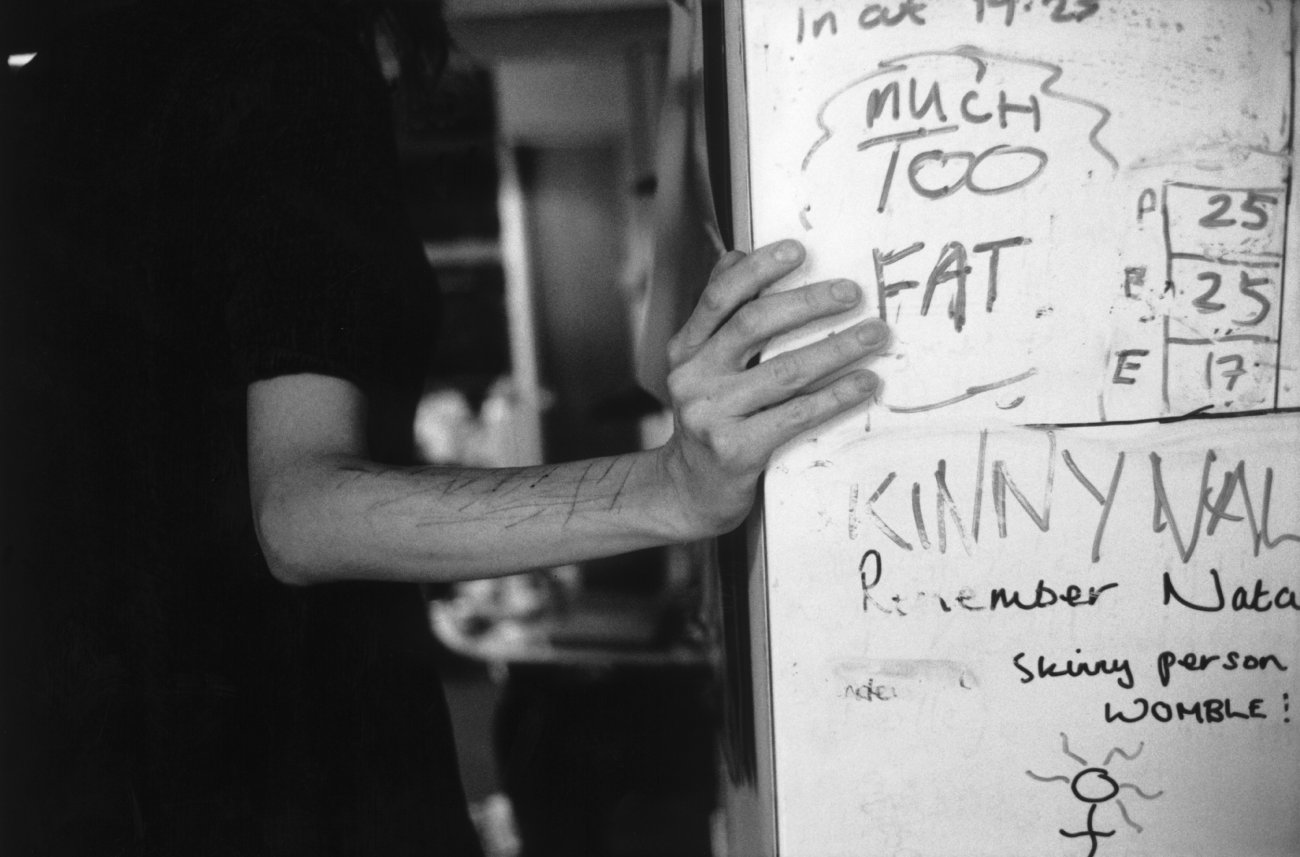 In out 19.25
MUCH
TOO
FAT
P 25
25
E 17
KINNY NAL
Remember Nata
Skinny person
WOMBLE!
note